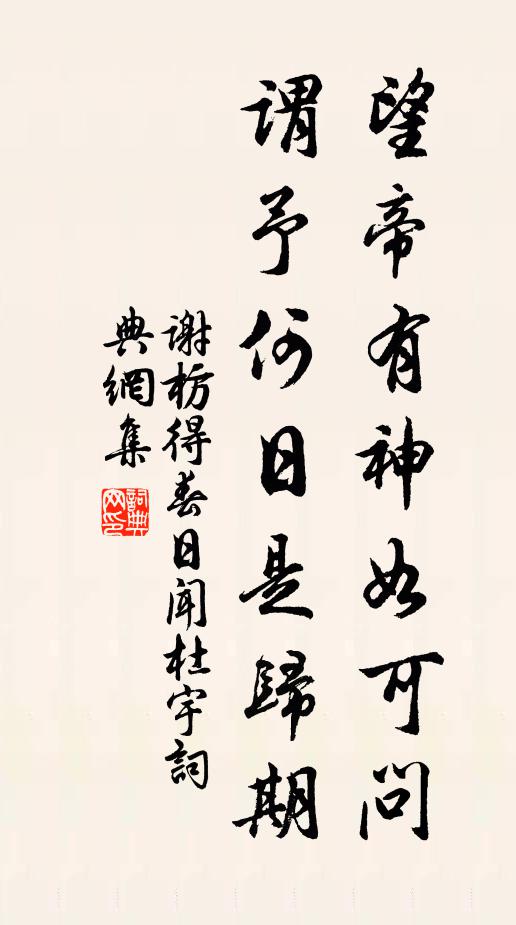 望帝有神如可問
謂予何日是歸期
謝枋得春日聞杜宇詞
典網集
詞典
网印